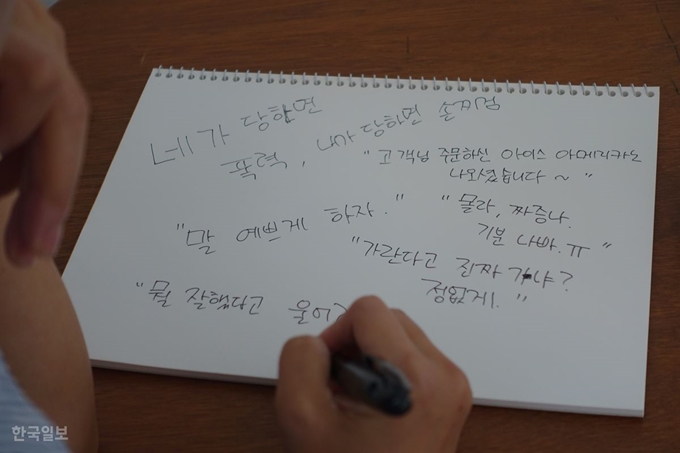 네가 당하면
폭력, 내가 당하면 손찌검
"고객님 주문하신 아이스 아메리카노
나오셨습니다 ~ "
"말 예쁘게 하자."
"몰라, 짜증나.
기분 나빠. ㅠ "
"가란다고 진짜 가냐?
정없게."
"뭘 잘했다고 울어?
한국일보